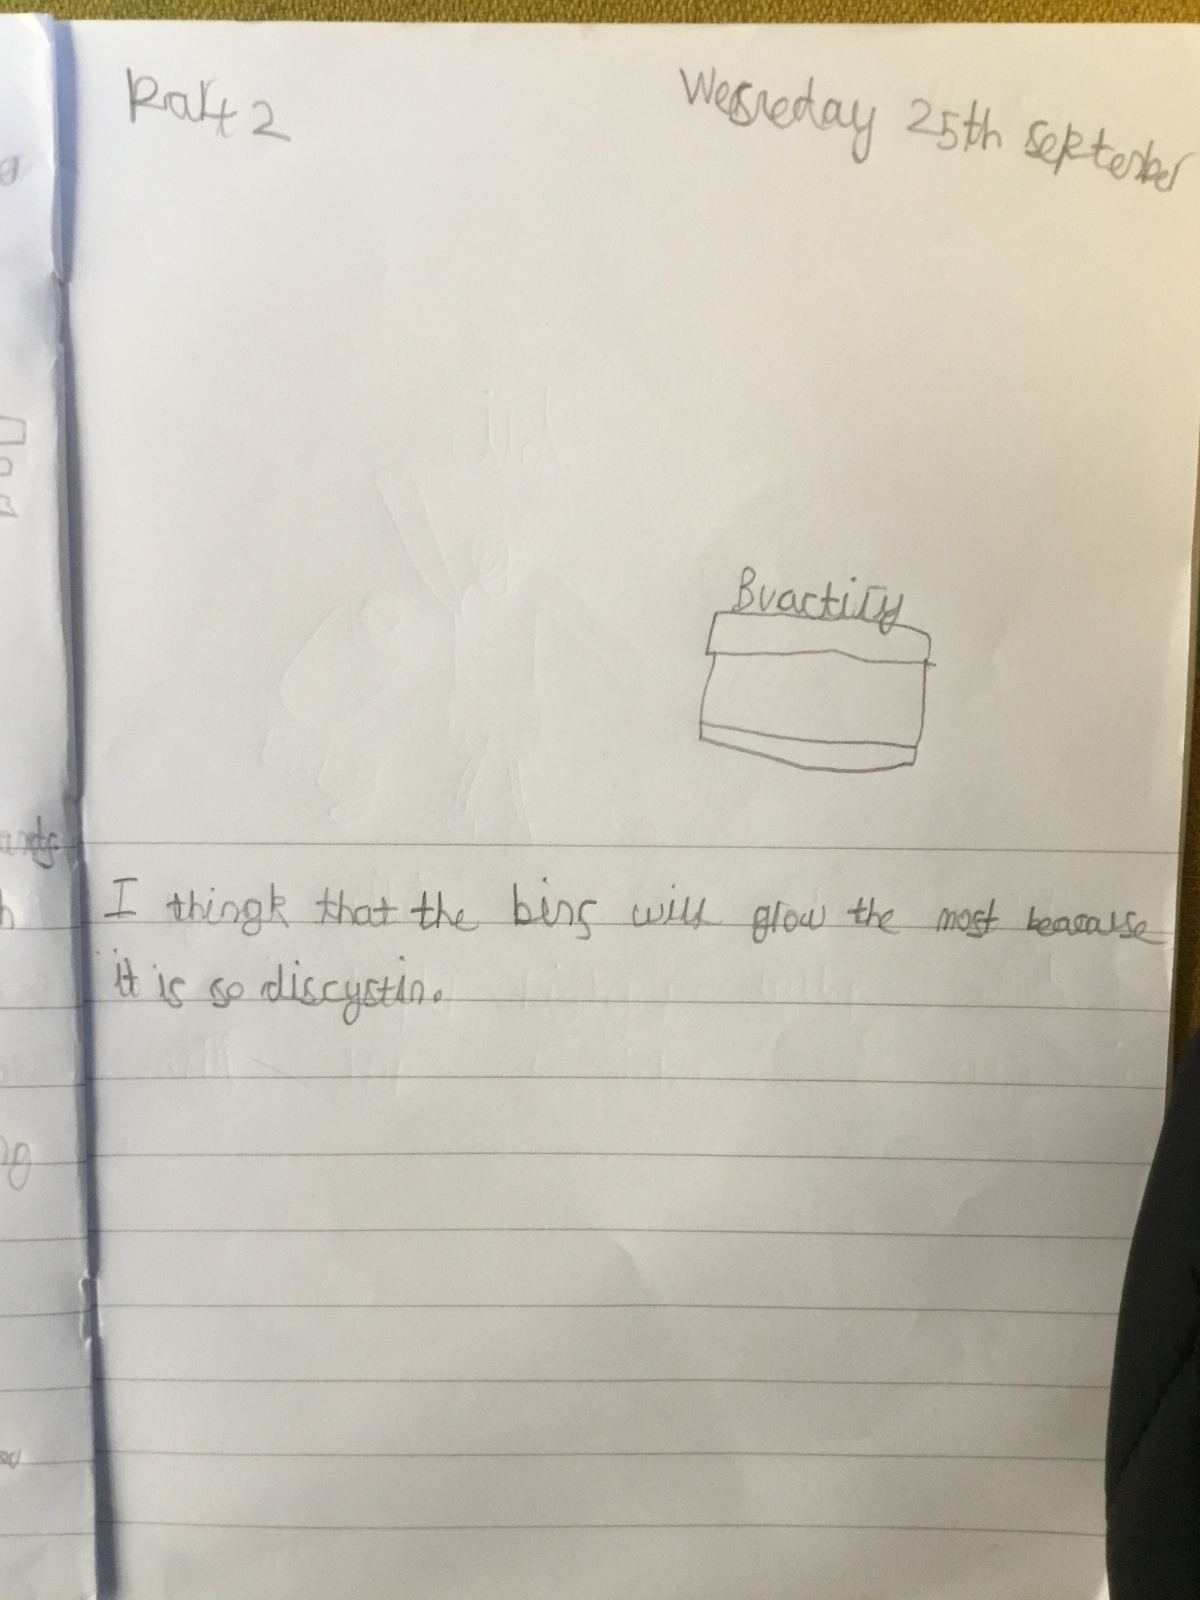 Part 2
Wesneday 25th September
Buactiry
I thingk that the bins will grow the most beacause
it is so discystin.